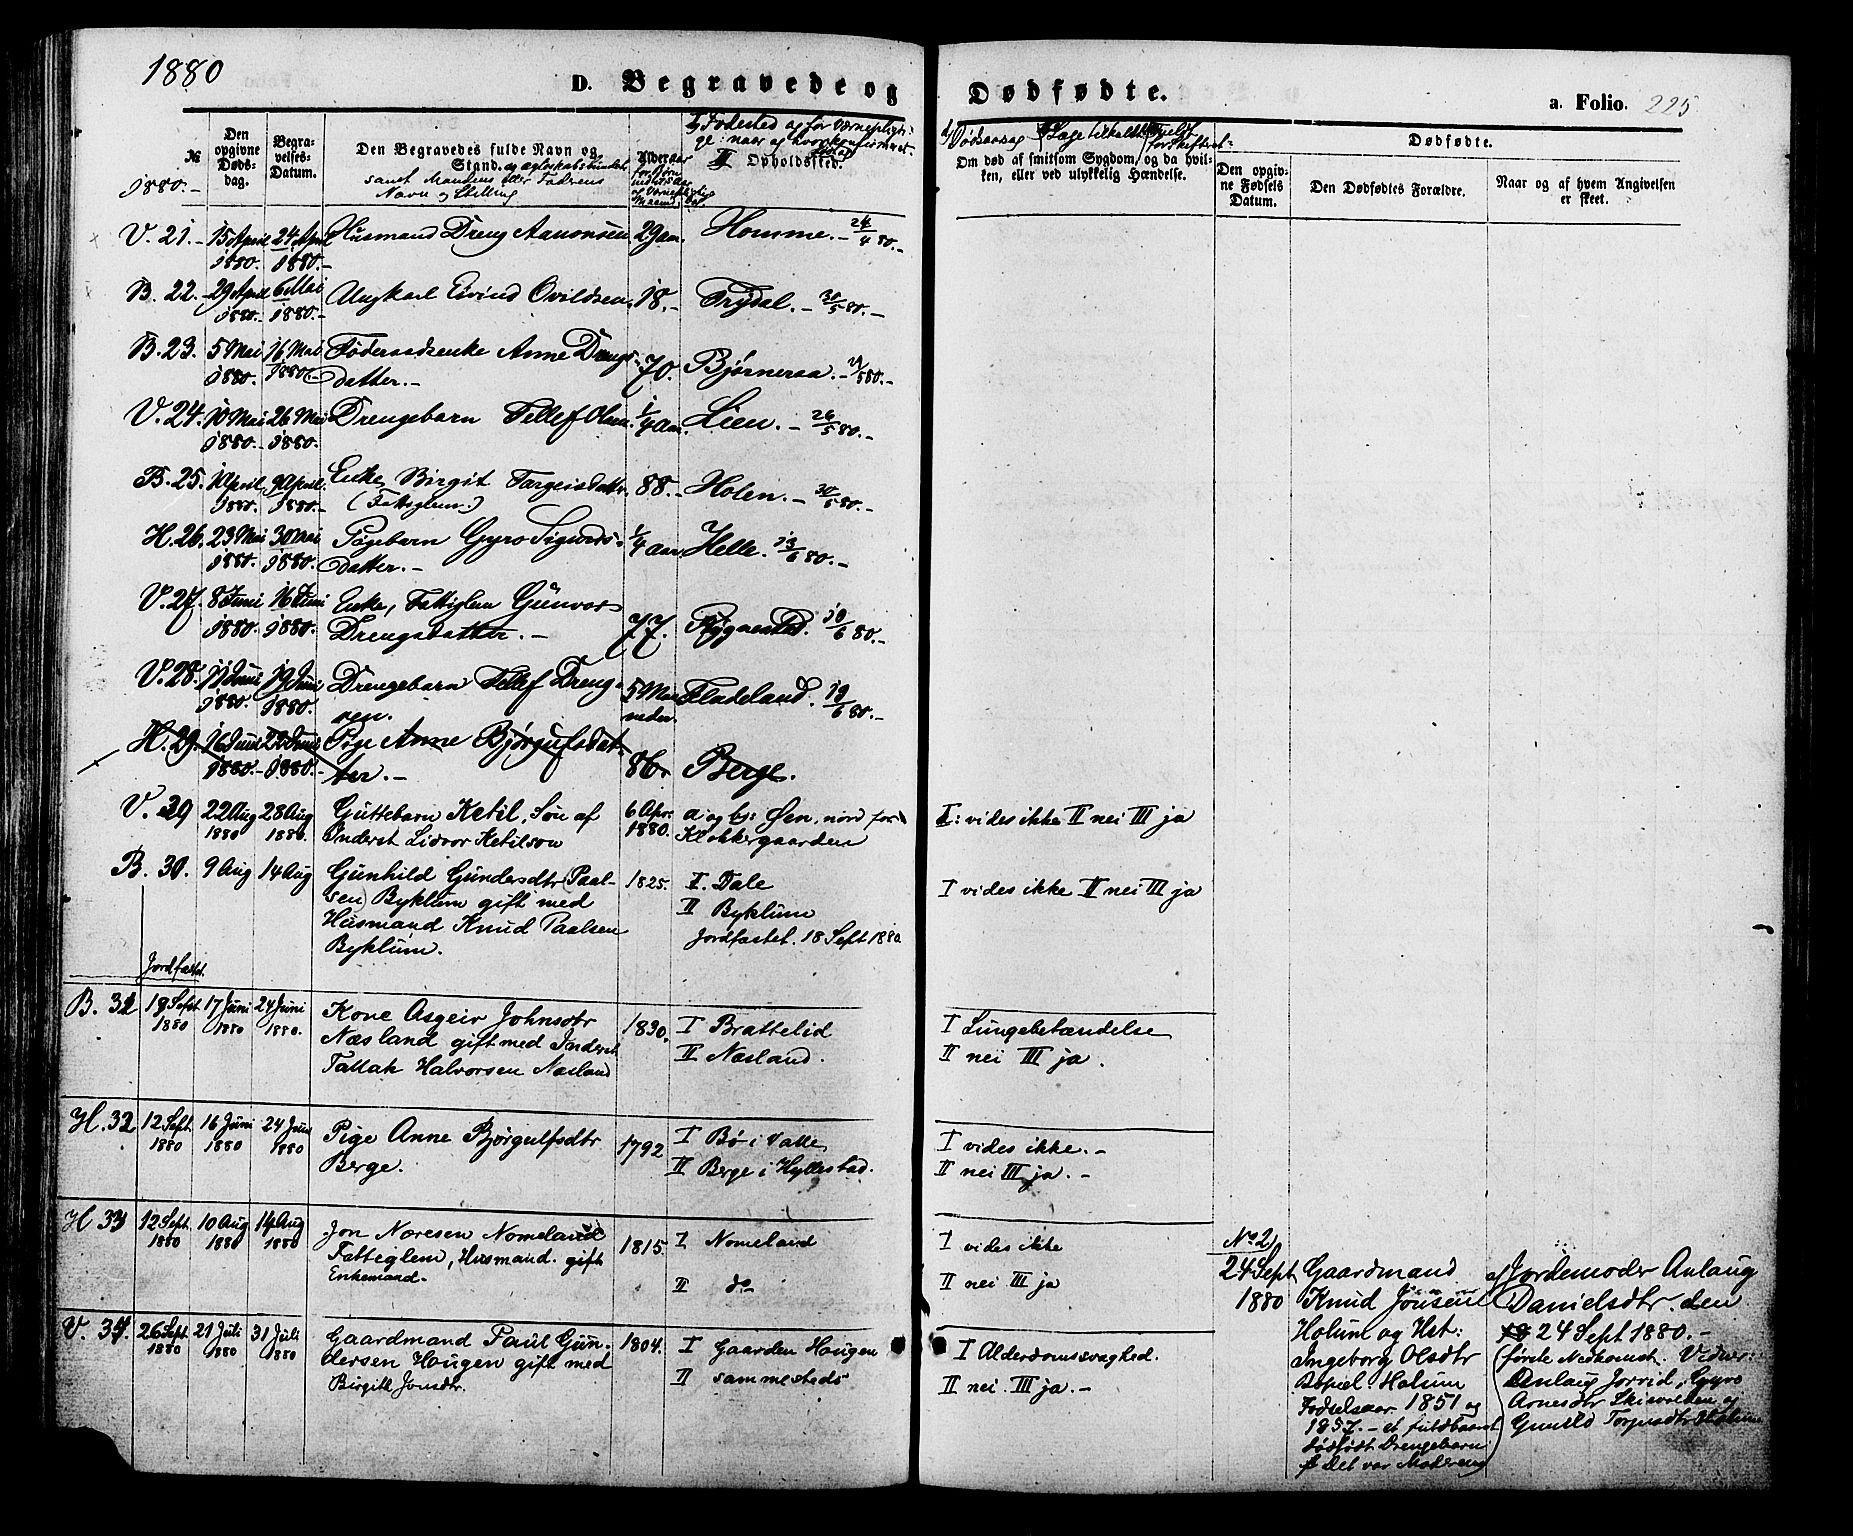 1880
D. Begravede og Dødfødte.
a. Folio. 225
№
1880.-
Den opgivne Døds-dag.
Begra-velses-Datum.
Den Begravedes fulde Navn og
Stand. og ægteskabs
samt Mandens eller Faderens
Navn og Stilling
Alder
I Fødested og for Værnepligti-
ge naar og hvor konfirmeret.
II Opholdssted.
I Dødsaarsag II Læge tilkaldt III
Om død af smitsom Sygdom, og da hvil-
ken, eller ved ulykkelig Hændelse.
Dødfødte.
Den opgiv-
ne Fødsels
Datum.
Den Dødfødtes Forældre.
Naar og af hvem Angivelsen
er skeet.
V. 21. 15 April 1880. 24 April 1880.- Husmand Dreng Aanonsen 29 aar. Homme. - 24/4 80.-
B. 22. 29 April 1880.- 6 Mai 1880.- Ungkarl Eivind Ovildsen 18.- Trydal. - 30/5 80.-
B. 23. 5 Mai 1880. 16 Mai 1880. Føderaadsenke Anne Drengs-
datter.- 70. Bjørneraa. -
V. 24. 10 Mai 1880.- 26 Mai 1880. Drengebarn Tellef Olsen. 1/4 aar. Lien. - 26/5 80.-
B. 25. 1 April 1880. 9 April. 1880.- Enke Birgit Targeisdattr.
(Fattiglem.) 88.- Holen. - 30/5 80.-
H. 26. 23 Mai 1880. 30 Mai 1880.- Pigebarn Gyro Sigurds-
datter.- 1/4 aar. Helle. 13/6 80.-
V. 27. 8 Juni 1880. 16 Juni 1880. Enke, Fattiglem Gunvor
Drengsdatter. - 77. Rygnestad. 19/6 80.-
V. 28. 11 Juni 1880. 19 Juni 1880. Drengebarn Tellef Dreng-
sen. 5 Maaneder. Fladeland. 19/6 80.-
H. 29. 16 Juni 1880.- 24 Juni 1880.- Pige Anne Bjørgulfsdat-
ter.- 86. Berge.
V. 29 22 Aug 1880 28 Aug 1880. Guttebarn Ketil, Søn af
Inderst Lidvor Ketilson 6 Apr. 1880. a og b: Øen, nord for
Klokkergaarden I: vides ikke II nei III ja
B. 30. 9 Aug 14 Aug Gunhild Gundersdtr (Paal-
sen) Byklum gift med
Husmand Knud Paalsen
Byklum. 1825. I. Dale
II Byklum
Jordfæstet. 18 Sept 1880 I vides ikke II nei III ja
Jordfæstet.
B. 31 18 Sept 1880 17 Juni 1880 24 Juni 1880. Kone Asgeir Johnsdtr
Næsland gift med Inderst
Tallak Halvorsen Næsland 1830. I Brattelid
II Næsland. I Lungebetændelse
II nei III ja.
H. 32 12 Sept. 1880 16 Juni 1880 24 Juni 1880 Pige Anne Bjørgulfsdtr
Berge. 1792 I Bø i Valle
II Berge i Hyllestad. I vides ikke.-
II nei III ja.-
H 33 12 Sept. 1880 10 Aug 1880 14 Aug 1880 Jon Noresen Nomeland
Fattiglem, Husmand. gift
Enkemand. 1815. I Nomeland
II do I vides ikke
II nei III ja
V. 34. 26 Sept. 1880 21 Juli 1880 31 Juli 1880 Gaardmand Paul Gun-
dersen Hougen gift med
Birgitt Jonsdtr. 1804. I Gaarden Hougen
II sammesteds I Alderdomssvaghed.
II nei. III ja.-
No 2
24 Sept 1880
Gaardmand
Knud Jonsen
Holum og Hst:
Ingeborg Olsdtr
Bopæl. Holum
Fødselsaar 1851 og
1857.- et fuldbaaret
dødfødt Drengebarn
det var Moderens
af Jordemoder Anlaug
Danielsdtr. den
24 Sept 1880.-
første Nedkomst.
Anlaug Jorrid, Gyro
Arnesdtr og
Gunild